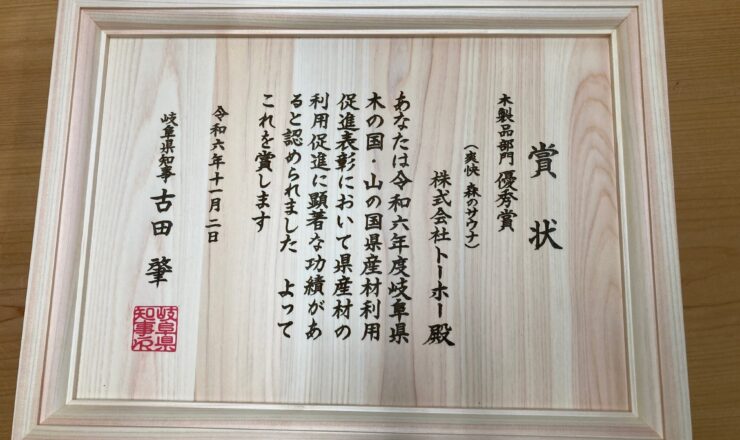 賞状
木製品部門 優秀賞
(爽快 森のサウナ)
株式会社トーホー殿
あなたは令和六年度岐阜県
木の国・山の国県産材利用
促進表彰において県産材の
利用促進に顕著な功績があ
ると認められました よって
これを賞します
令和六年十一月二日
岐阜県知事 古田 肇
岐阜県
知事之印